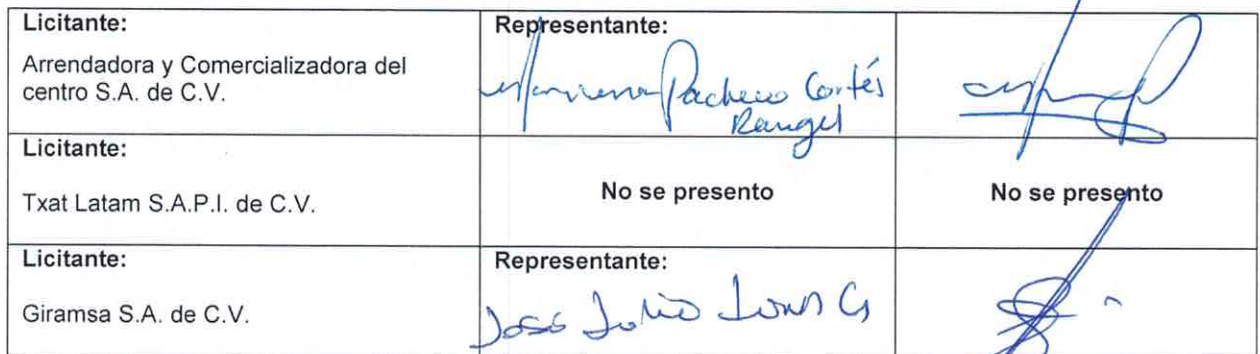 Licitante:
Arrendadora y Comercializadora del
centro S.A. de C.V.
Representante:
Pacheco Cortés
Rangel
Licitante:
Txat Latam S.A.P.I. de C.V.
No se presento
No se presento
Licitante:
Giramsa S.A. de C.V.
Representante:
José Julio